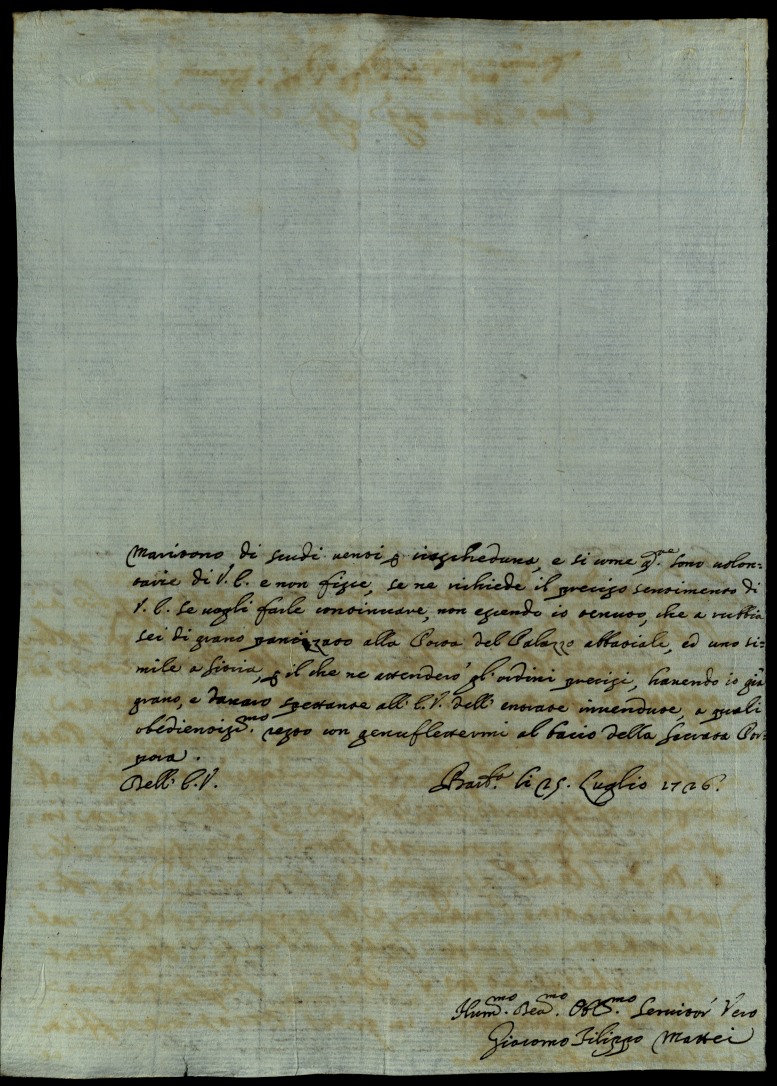 Maritono di scudi venti ꝑ ciascheduna, e si come q.ste sono volon=
tarie di V. E. e non fisse, se ne richiede il preciso sentimento di
V. E. se vogli farle continuare, non essendo io tenuto, che a rubbia
sei di grano panizzato alla Porta del Palazzo abbatiale, ed uno si=
mile a Siccia, ꝑ il che ne attenderò gl'ordini precisi, havendo io già
grano, e danaro spettante all' E. V. dell' entrate invendute, a quali
obedientiss.mo resto con genuflettermi al bacio della Sacrata Por=
pora.
Dell' E. V. li 25. Luglio 1726.
Hum.mo Dev.mo Obb.mo Servitor Vero
Giacomo Filippo Mattei